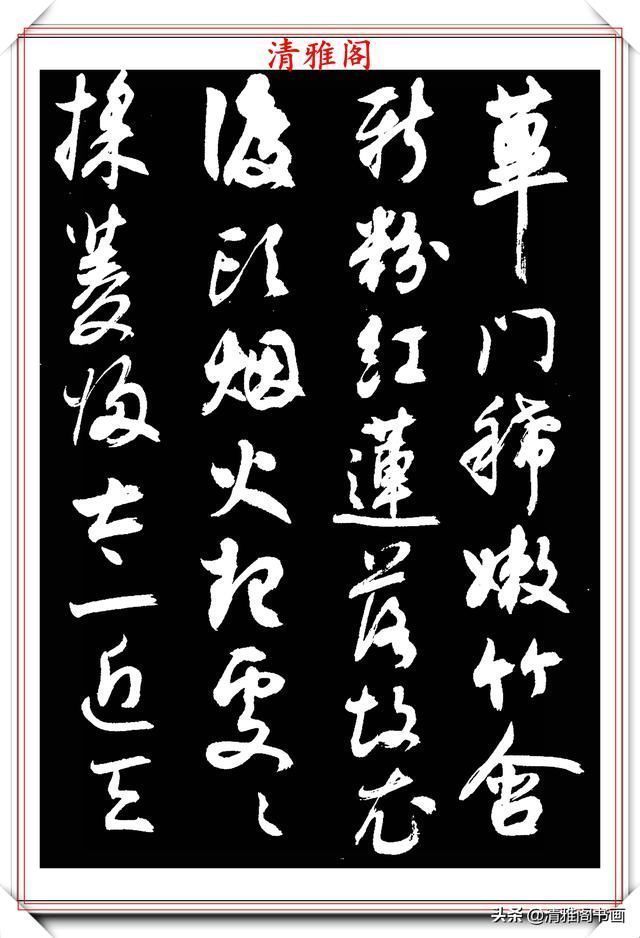 清雅阁
荜门稀嫩竹含
新粉红蓮落故衣
渡头烟火起处々
採菱归太一近天
头条@清雅阁书画